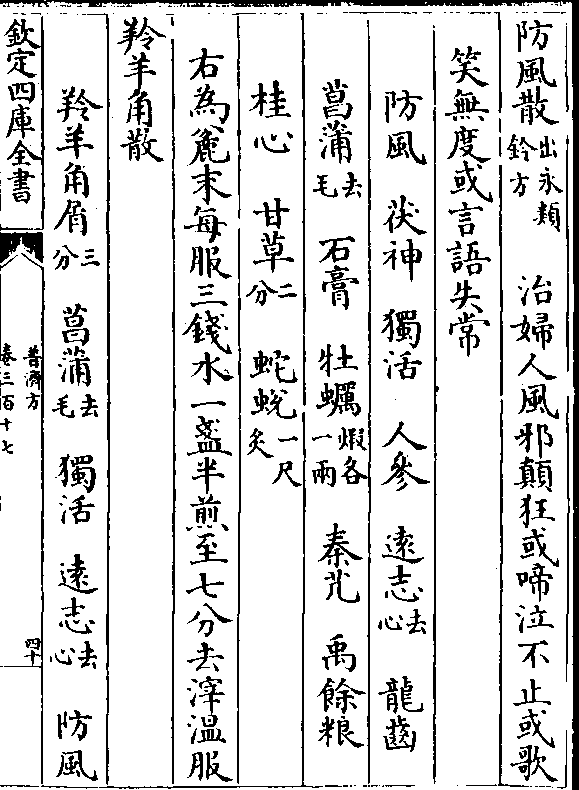 防風散出永類鈐方 治婦人風邪顛狂或啼泣不止或歌
笑無度或言語失常
防風 茯神 獨活 人參 遠志去心 龍齒
菖蒲去毛 石膏 牡蠣煆各一兩 秦艽 禹餘粮
桂心 甘草二分 蛇蛻一尺炙
右為麄末每服三錢水一盞半煎至七分去滓溫服
羚羊角散
羚羊角屑三分 菖蒲去毛 獨活 遠志去心 防風
欽定四庫全書
普濟方
卷三百十七
四十